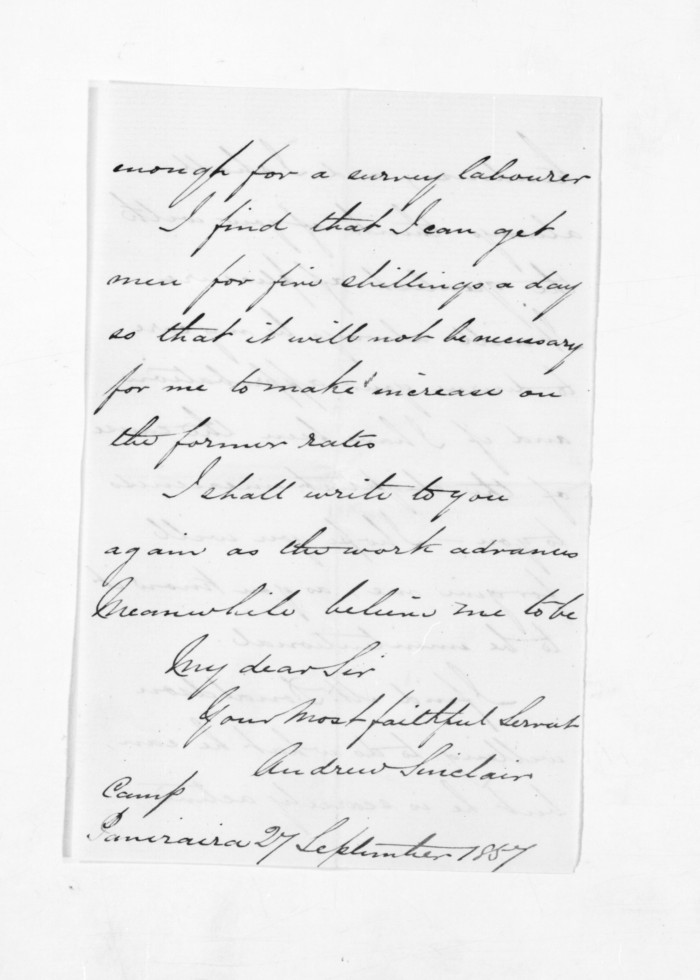 enough for a survey labourer
I find that I can get
men for five shillings a day
so that it will not be necessary
for me to make increase on
the former rates
I shall write to you
again as the work advances
Meanwhile believe me to be
My dear Sir
Your Most faithful Servant
Andrew Sinclair
Camp
27 September 1857